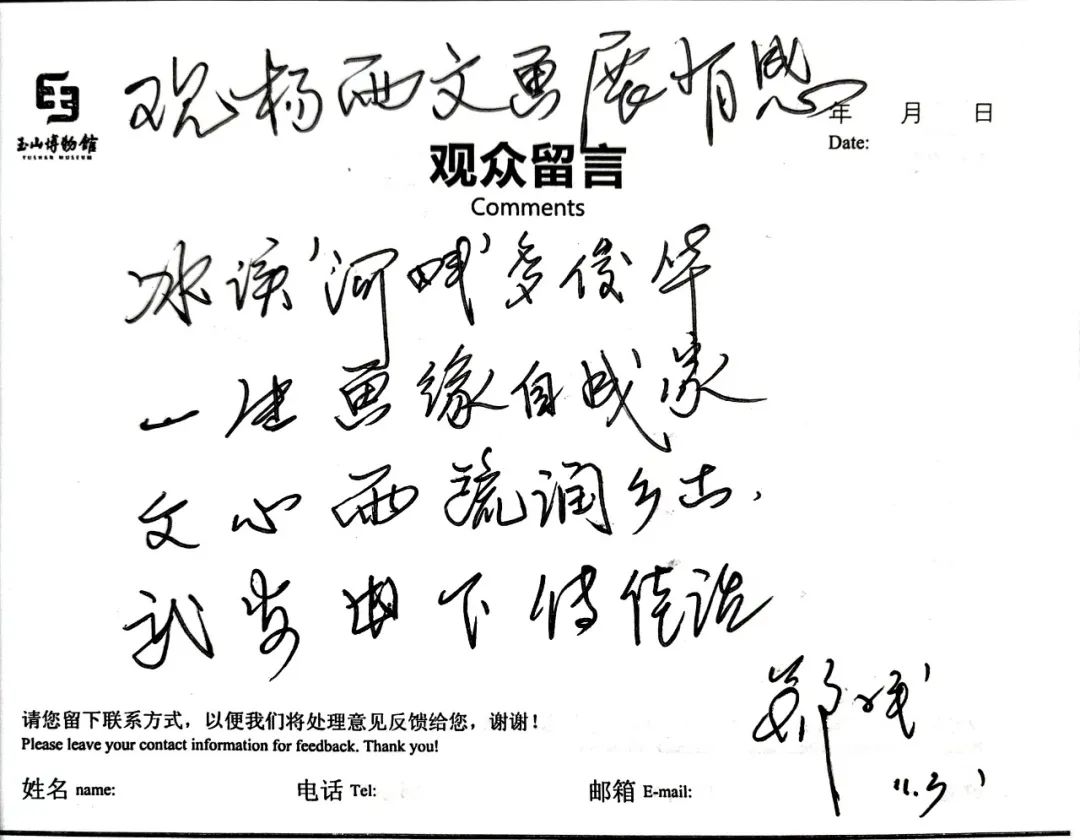 观杨西文画展有感
玉山博物馆
YUSHAN MUSEUM
年 月 日
Date:
观众留言
Comments
冰溪'河畔'多俊华
一生画缘自成家
文心西 润乡土,
武安山下传佳话
郑
11.3
请您留下联系方式，以便我们将处理意见反馈给您，谢谢！
Please leave your contact information for feedback. Thank you!
姓名 name: 电话 Tel: 邮箱 E-mail: